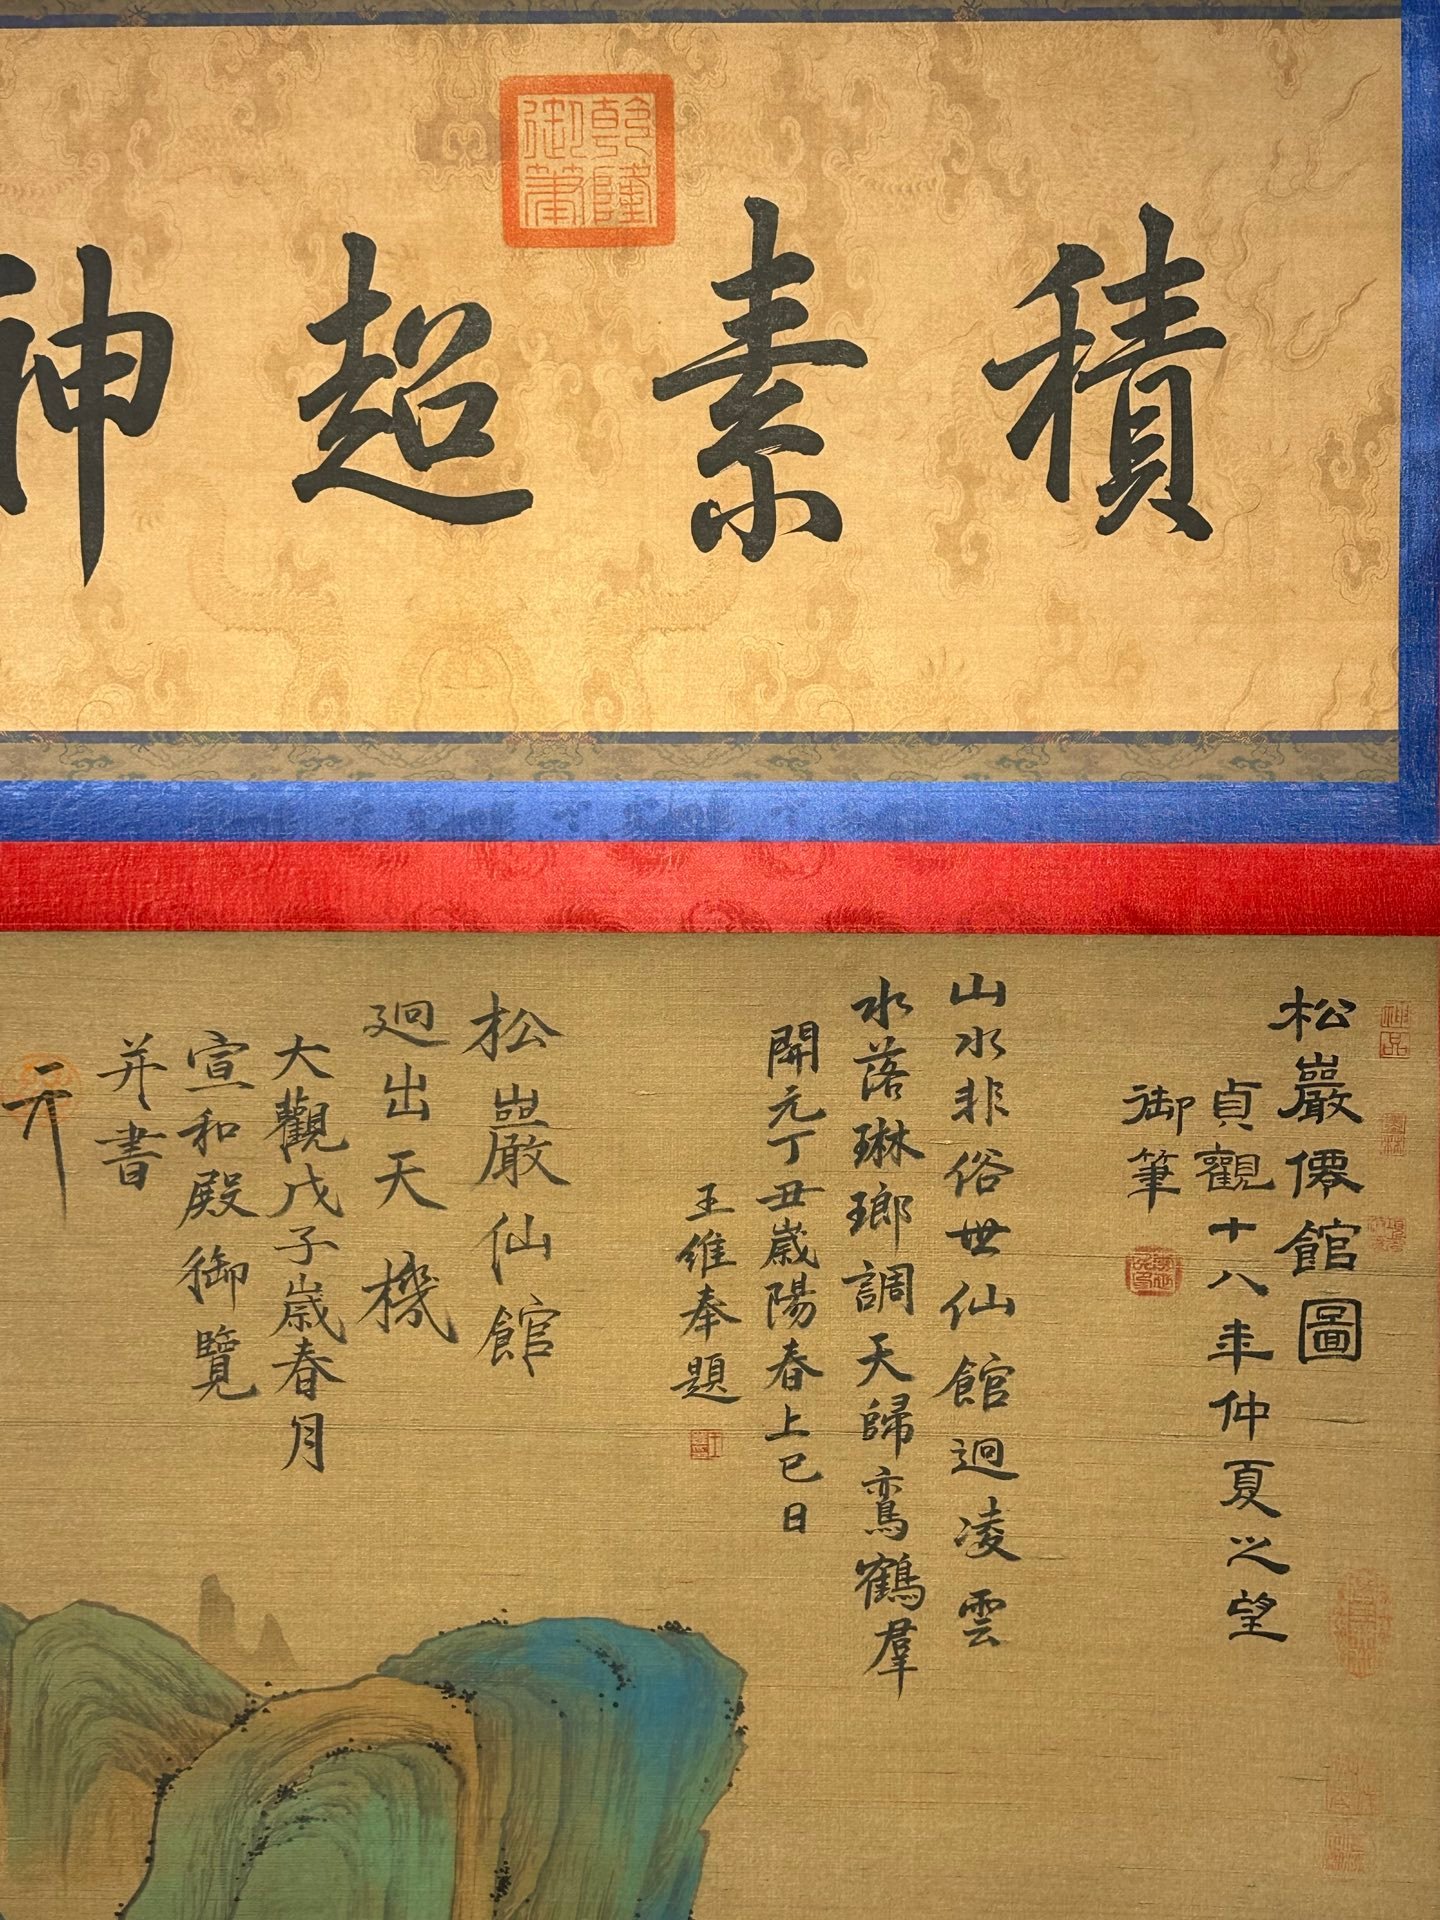 積素超神
乾隆御筆
神品
松巖僊館圖
貞觀十八年仲夏之望
御筆
山水非俗世仙館迥凌雲
水落琳瑯調天歸鸞鶴羣
開元丁丑歲陽春上巳日
王維奉題
松巖仙館
迥出天機
大觀戊子歲春月
宣和殿御覽
并書